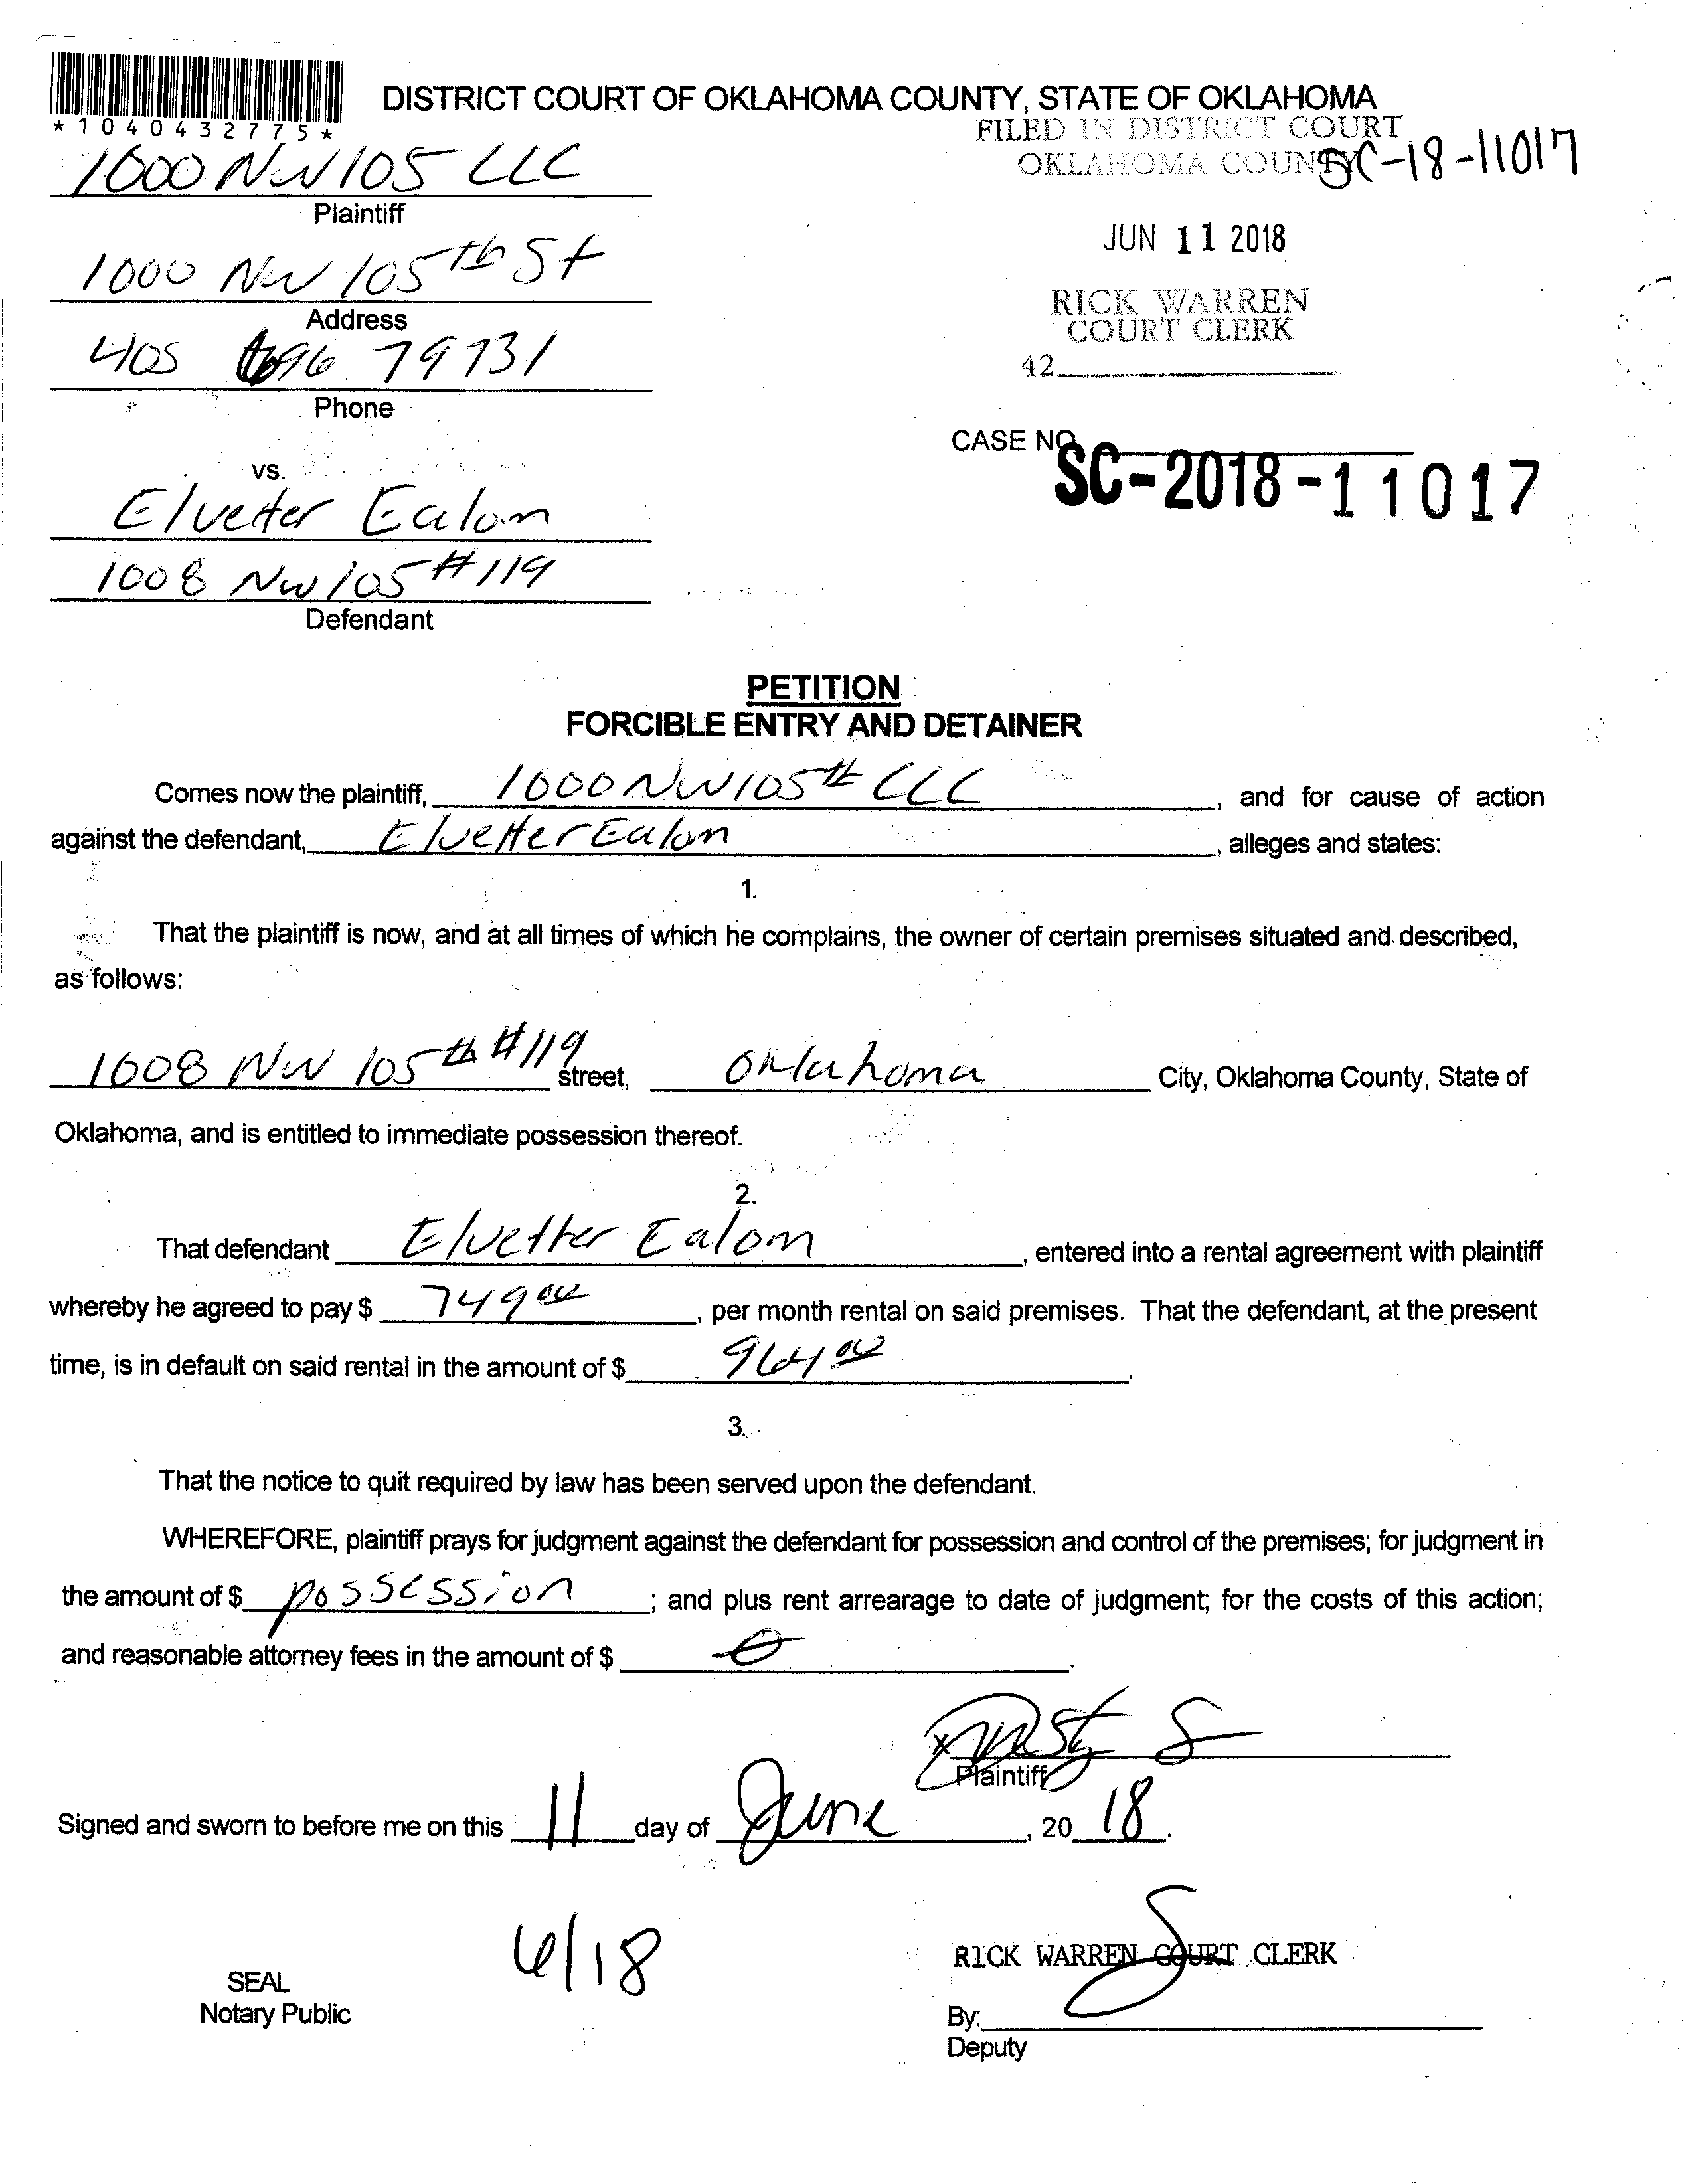 DISTRICT COURT OF OKLAHOMA COUNTY, STATE OF OKLAHOMA
*1040432775*
FILED IN DISTRICT COURT
OKLAHOMA COUNTY
SC-18-11017
1000 NW 105 LLC
Plaintiff
JUN 11 2018
1000 NW 105th St
Address
RICK WARREN
COURT CLERK
42
405 696
Phone
CASE NO.
SC-2018-11017
vs.
Elvetter Ealom
1008 NW 105 #119
Defendant
PETITION
FORCIBLE ENTRY AND DETAINER
Comes now the plaintiff, 1000 NW 105th LLC, and for cause of action
against the defendant, Elvetter Ealom, alleges and states:
1.
That the plaintiff is now, and at all times of which he complains, the owner of certain premises situated and described,
as follows:
1008 NW 105th #119 street, Oklahoma City, Oklahoma County, State of
Oklahoma, and is entitled to immediate possession thereof.
2.
That defendant Elvetter Ealom, entered into a rental agreement with plaintiff
whereby he agreed to pay $ 749 00, per month rental on said premises. That the defendant, at the present
time, is in default on said rental in the amount of $ 964 00.
3.
That the notice to quit required by law has been served upon the defendant.
WHEREFORE, plaintiff prays for judgment against the defendant for possession and control of the premises; for judgment in
the amount of $ possession; and plus rent arrearage to date of judgment; for the costs of this action;
and reasonable attorney fees in the amount of $ 0.
Plaintiff
Signed and sworn to before me on this 11 day of June, 20 18.
6/18
RICK WARREN COURT CLERK
SEAL
Notary Public
By:
Deputy